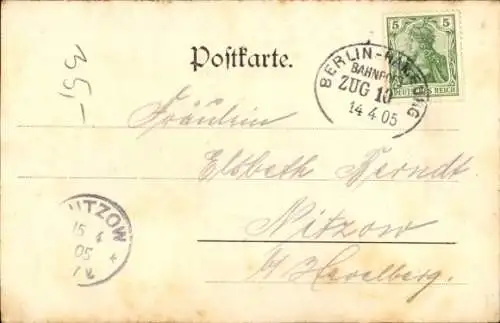 Postkarte.
5 5
DEUTSCHES REICH
BERLIN-HAMBURG
BAHNPOST
ZUG 10
14 4 05
35,-
Fräulein
Elsbeth Berndt
Nitzow
b/ Havelberg.
NITZOW
15 4
05